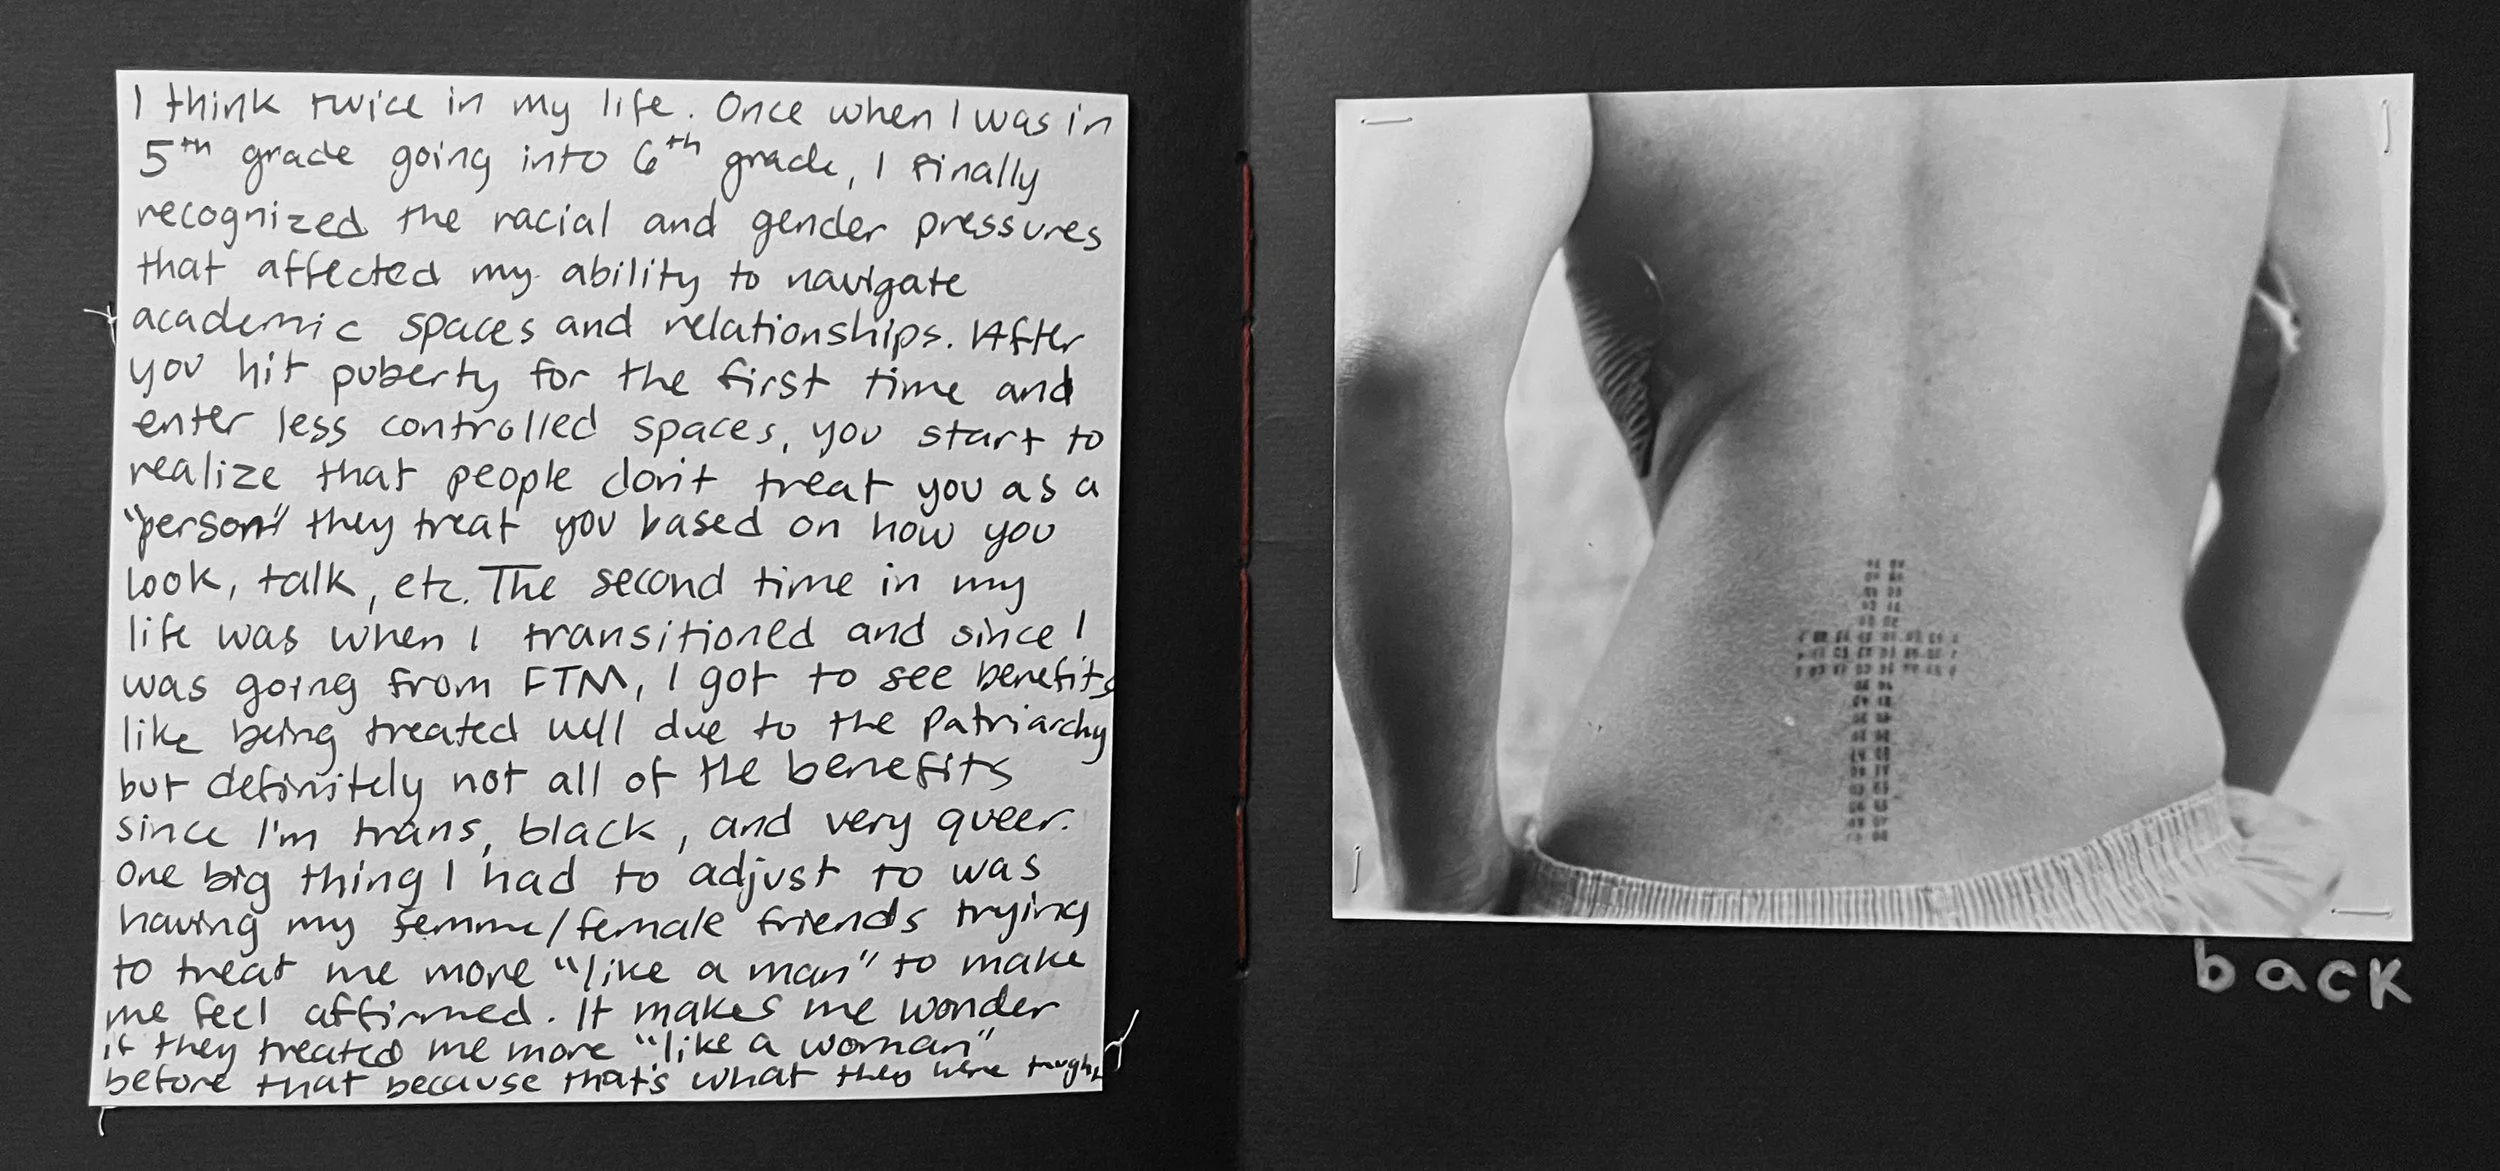 I think twice in my life. Once when I was in
5th grade going into 6th grade, I finally
recognized the racial and gender pressures
that affected my ability to navigate
academic spaces and relationships. After
you hit puberty for the first time and
enter less controlled spaces, you start to
realize that people don't treat you as a
"person" they treat you based on how you
look, talk, etc. The second time in my
life was when I transitioned and since I
was going from FTM, I got to see benefits
like being treated well due to the patriarchy
but definitely not all of the benefits
since I'm trans, black, and very queer.
One big thing I had to adjust to was
having my femme/female friends trying
to treat me more "like a man" to make
me feel affirmed. It makes me wonder
if they treated me more "like a woman"
before that because that's what they were taught
back